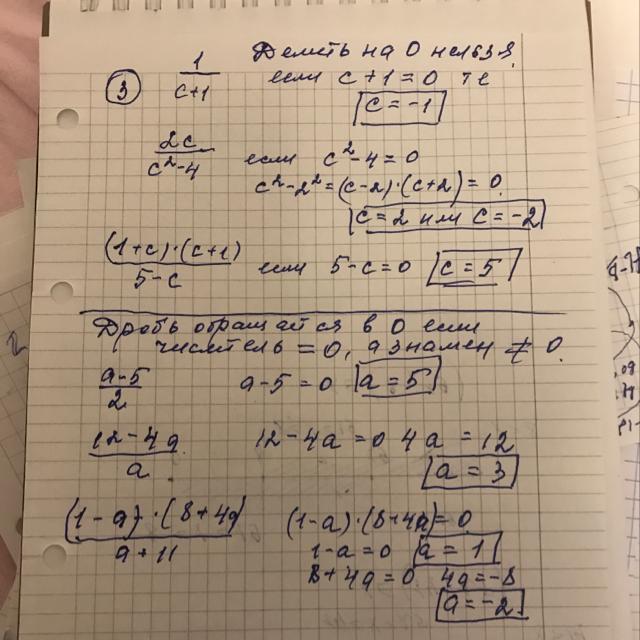 Делить на 0 нельзя
③ 1/(c+1) если c+1=0 те
c=-1
2c/(c²-4) если c²-4=0
c²-2²=(c-2)·(c+2)=0
c=2 или c=-2
(1+c)·(c+1)/(5-c) если 5-c=0 c=5
Дробь обращается в 0 если
числитель=0, а знамен ≠ 0.
(a-5)/2 a-5=0 a=5
(12-4a)/a 12-4a=0 4a=12
a=3
(1-a)·(8+4a)/(a+11) (1-a)·(8+4a)=0
1-a=0 a=1
8+4a=0 4a=-8
a=-2